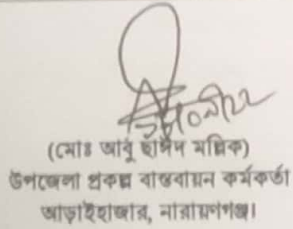 (মোঃ আবু ছাঈদ মল্লিক)
উপজেলা প্রকল্প বাস্তবায়ন কর্মকর্তা
আড়াইহাজার, নারায়ণগঞ্জ।